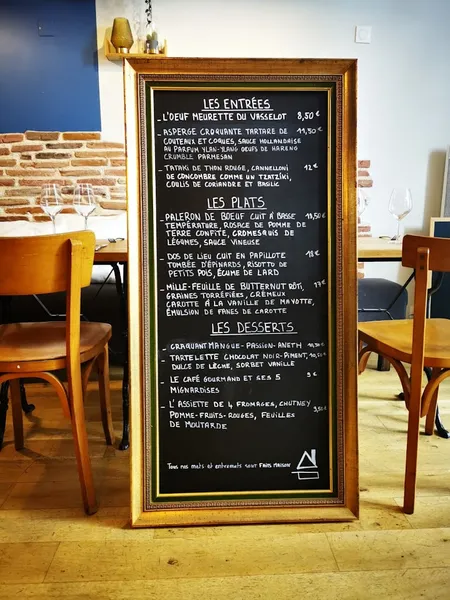 LES ENTRÉES
- L'OEUF MEURETTE DU VASSELOT 8,50€
- ASPERGE CROQUANTE TARTARE DE 11,50€
COUTEAUX ET COQUES, SAUCE HOLLANDAISE
AU PARFUM YLAN-YLANG OEUFS DE HARENG
CRUMBLE PARMESAN
- TATAKI DE THON ROUGE, CANNELLONI 12€
DE CONCOMBRE COMME UN TZATZIKI,
COULIS DE CORIANDRE ET BASILIC
LES PLATS
- PALERON DE BOEUF CUIT A BASSE 18,50€
TEMPÉRATURE, ROSACE DE POMME DE
TERRE CONFITE, CROMESQUIS DE
LÉGUMES, SAUCE VINEUSE
- DOS DE LIEU CUIT EN PAPILLOTE 18€
TOMBÉE D'ÉPINARDS, RISOTTO DE
PETITS POIS, ÉCUME DE LARD
- MILLE-FEUILLE DE BUTTERNUT RÔTI, 17€
GRAINES TORRÉFIÉES, CRÉMEUX
CAROTTE À LA VANILLE DE MAYOTTE,
ÉMULSION DE FANES DE CAROTTE
LES DESSERTS
- CRAQUANT MANGUE-PASSION-ANETH
- TARTELETTE CHOCOLAT NOIR-PIMENT,
DULCE DE LÈCHE, SORBET VANILLE
- LE CAFÉ GOURMAND ET SES 5 9€
MIGNARDISES
- L'ASSIETTE DE 4 FROMAGES, CHUTNEY
POMME-FRUITS-ROUGES, FEUILLES
DE MOUTARDE
Tous nos mets et entremets sont FAITS MAISON